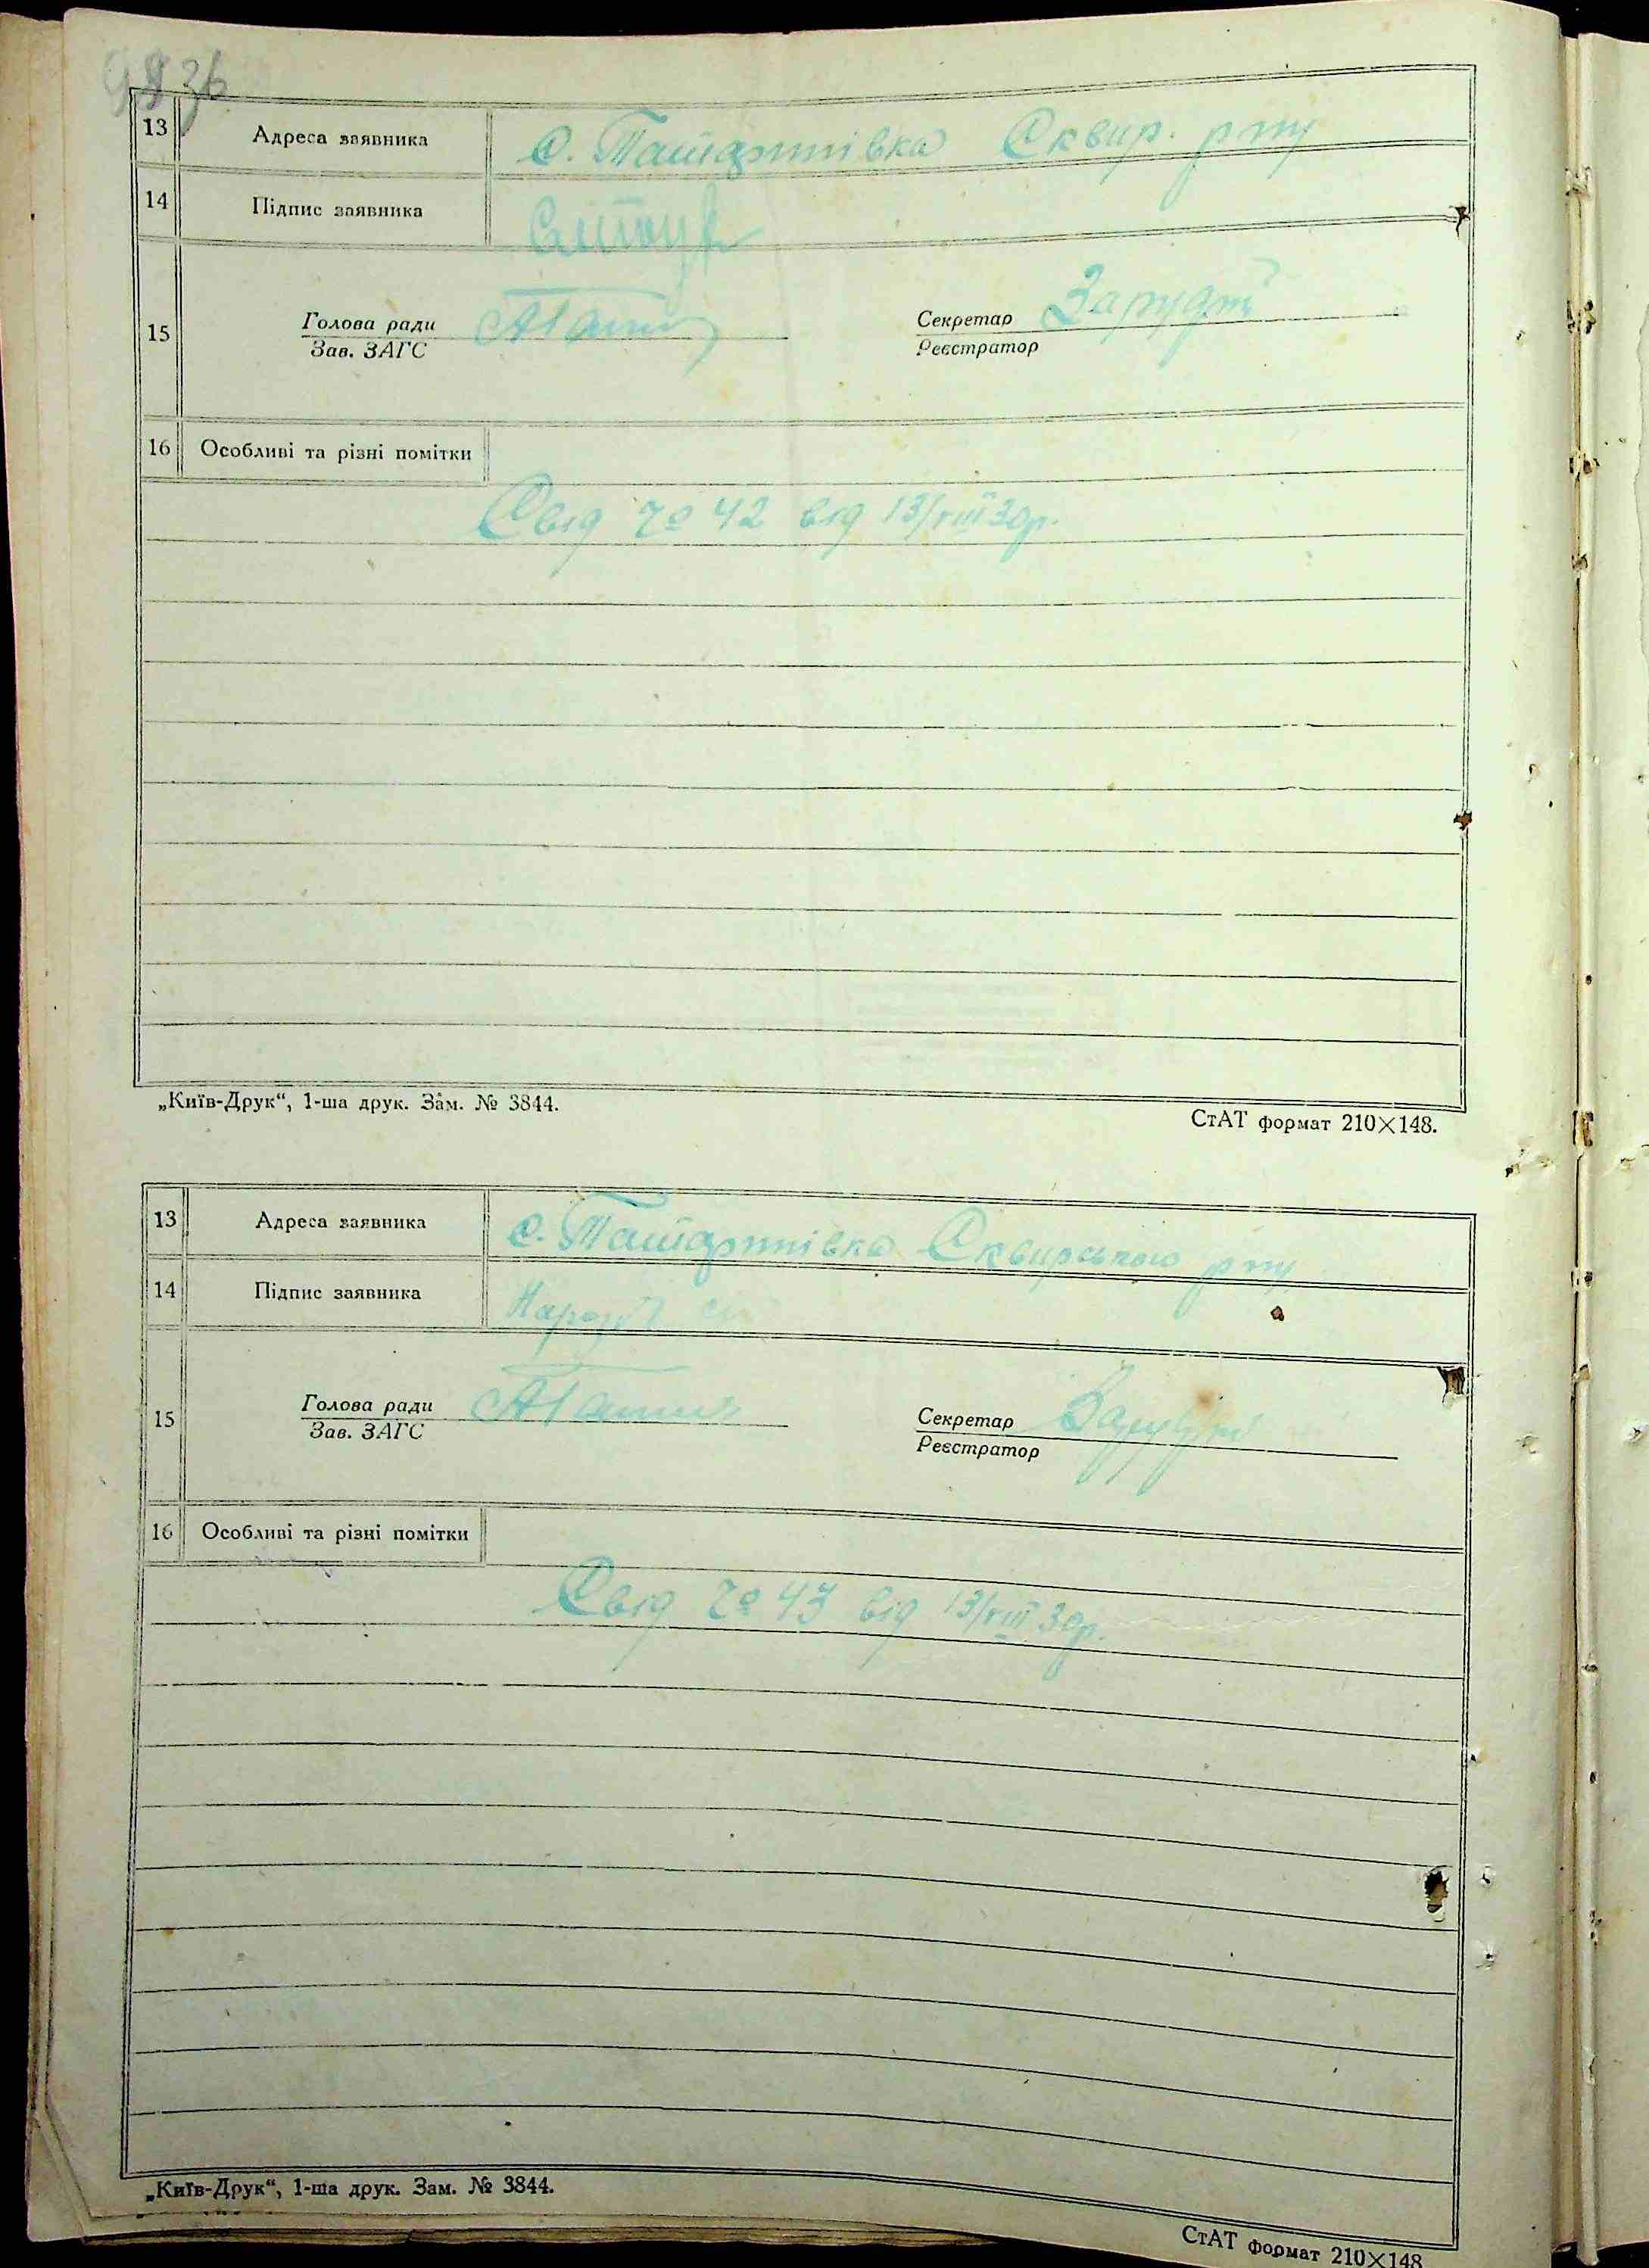 36
13 Адреса заявника с. Татаринівка Сквир. р ну
14 Підпис заявника
15 Голова ради Секретар
Зав. ЗАГС Реєстратор
16 Особливі та різні помітки
Свід № 42 від 13/VIII 30р.
„Київ-Друк“, 1-ша друк. Зам. № 3844.
СтАТ формат 210×148.
13 Адреса заявника с. Татаринівка Сквирського р ну
14 Підпис заявника
15 Голова ради Секретар
Зав. ЗАГС Реєстратор
16 Особливі та різні помітки
Свід № 43 від 13/VIII 30р.
„Київ-Друк“, 1-ша друк. Зам. № 3844.
СтАТ формат 210×148